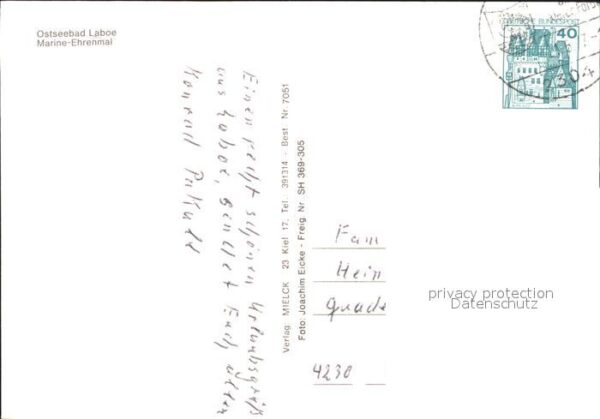 Ostseebad Laboe
Marine-Ehrenmal
DEUTSCHE BUNDESPOST
40
2304
Einen recht schönen Urlaubsgruß
aus Laboe, sendet Euch allen
Konrad
Verlag MIELCK 23 Kiel 17. Tel. 391314 - Best Nr 7051
Foto: Joachim Eicke - Freig Nr SH 369-305
Fam
Hein
4230
privacy protection
Datenschutz